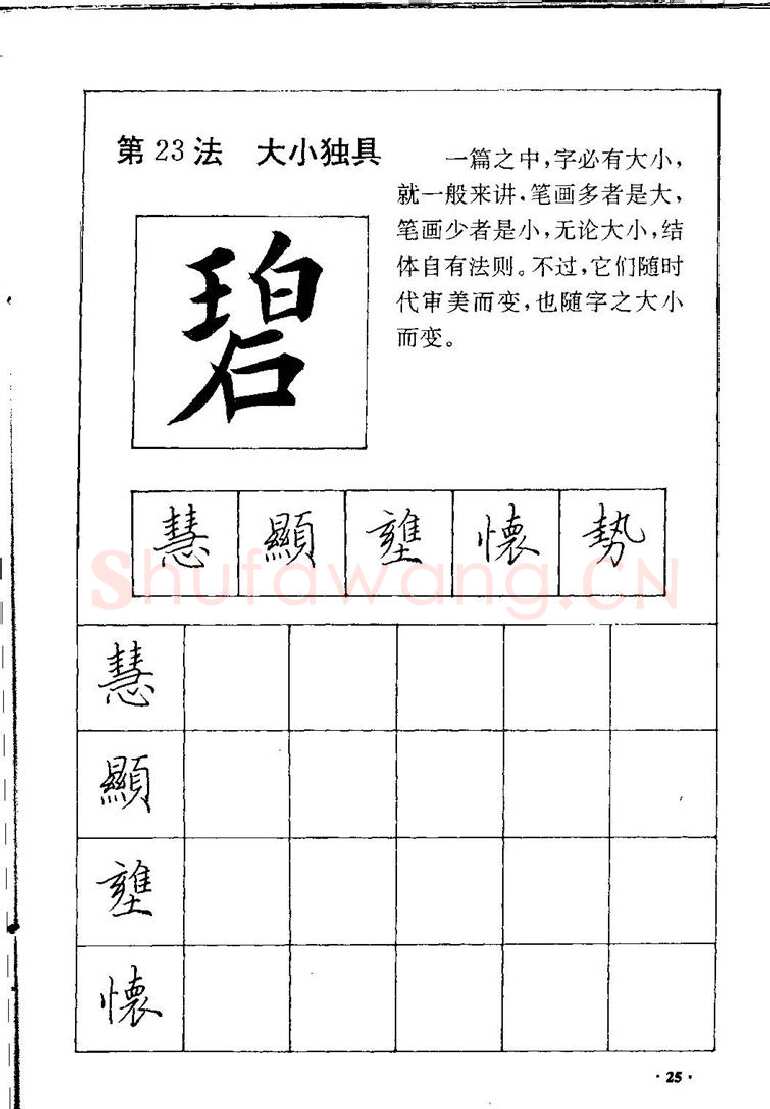 第23法 大小独具
一篇之中,字必有大小,
就一般来讲,笔画多者是大,
笔画少者是小,无论大小,结
体自有法则。不过,它们随时
代审美而变,也随字之大小
而变。
碧
慧 顯 壅 懷 势
Shufawang.CN
慧
顯
壅
懷
·25·